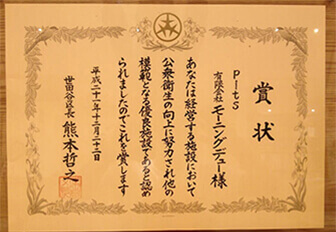 賞状
Pits
有限会社 モーニングデュー様
あなたは経営する施設において
公衆衛生の向上に努力され他の
模範となる優良施設であると認め
られましたのでこれを賞します
平成二十一年十二月二十二日
世田谷区長 熊本哲之